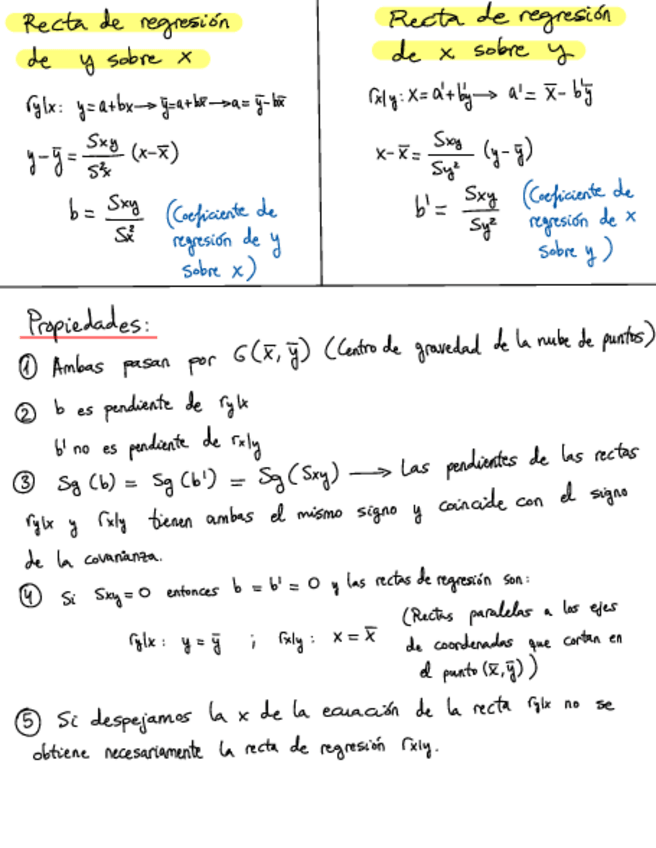 Recta de regresión
de y sobre x
r y|x: y=a+bx→ȳ=a+bx̄→a=ȳ-bx̄
y-ȳ = Sxy/S²x (x-x̄)
b = Sxy/Sx² (Coeficiente de
regresión de y
sobre x)
Recta de regresión
de x sobre y
r x|y: x=a'+b'y→ a'= x̄-b'ȳ
x-x̄ = Sxy/Sy² (y-ȳ)
b' = Sxy/Sy² (Coeficiente de
regresión de x
sobre y)
Propiedades:
① Ambas pasan por G(x̄, ȳ) (Centro de gravedad de la nube de puntos)
② b es pendiente de r y|x
b' no es pendiente de r x|y
③ Sg (b) = Sg (b') = Sg (Sxy) → Las pendientes de las rectas
r y|x y r x|y tienen ambas el mismo signo y coincide con el signo
de la covarianza.
④ Si Sxy = 0 entonces b = b' = 0 y las rectas de regresión son:
r y|x: y = ȳ ; r x|y: x = x̄ (Rectas paralelas a los ejes
de coordenadas que cortan en
el punto (x̄, ȳ))
⑤ Si despejamos la x de la ecuación de la recta r y|x no se
obtiene necesariamente la recta de regresión r x|y.